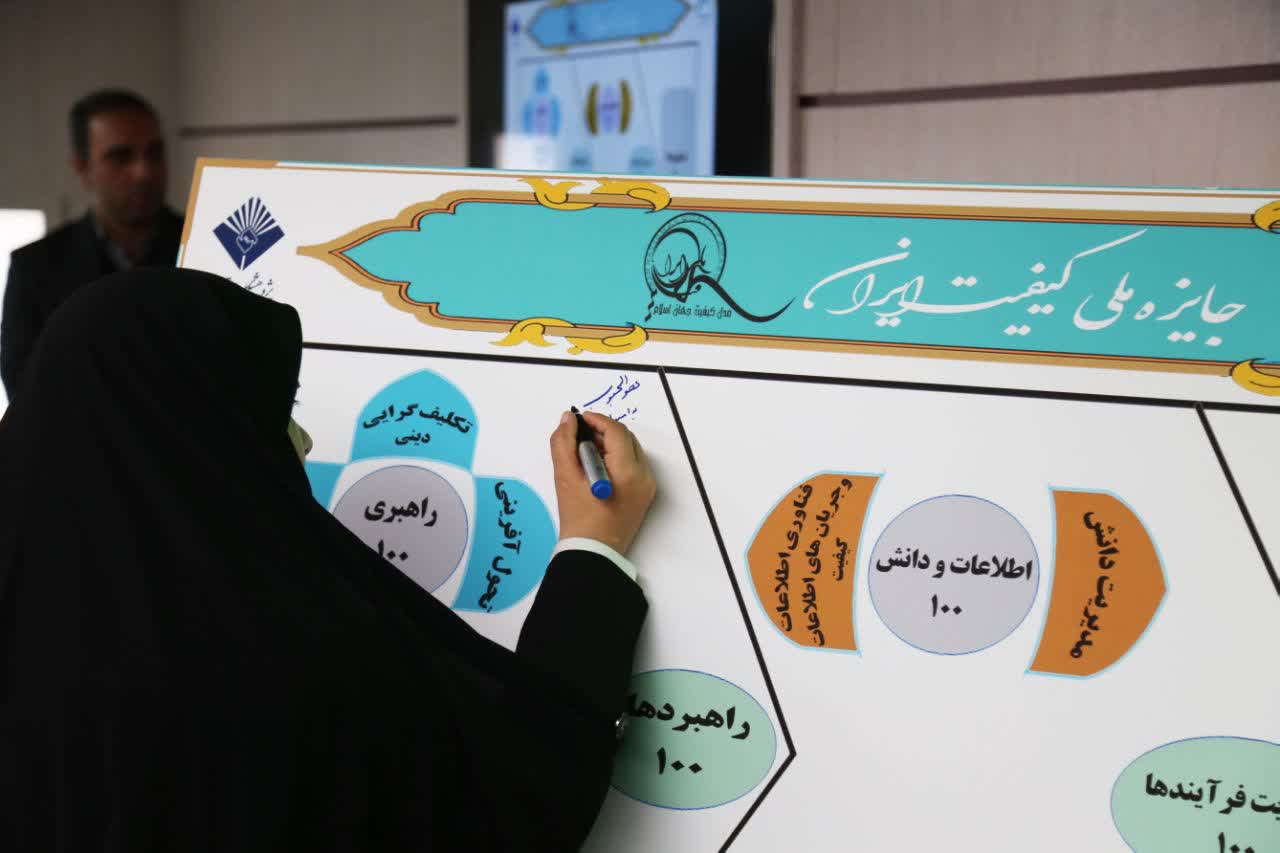 جایزه ملی کیفیت ایران
مدل کیفیت جهان اسلام
تکلیف گرایی
دینی
راهبری
۱۰۰
تحول آفرینی
هوالمحبوب
فناوری اطلاعات
و جریان های اطلاعات
کیفیت
اطلاعات و دانش
۱۰۰
مدیریت دانش
راهبردها
۱۰۰
فرآیندها
۱۰۰